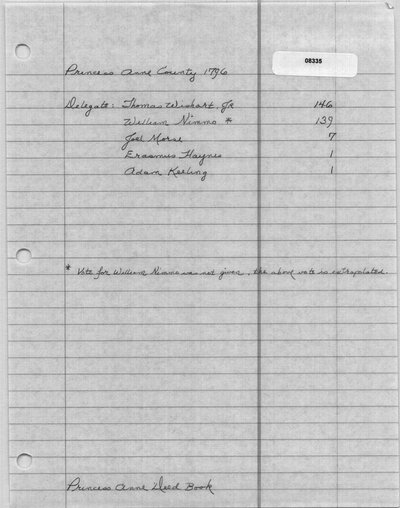 08335
Princess Anne County 1796
Delegate: Thomas Wishart Jr 146
William Nimmo * 139
Joel Morse 7
Erasmus Haynes 1
Adam Keeling 1
* Vote for William Nimmo was not given, the above vote is extrapolated.
Princess Anne Deed Book